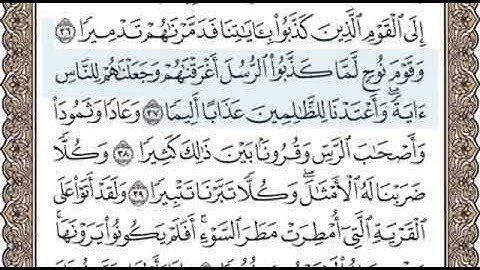 إِلَى ٱلْقَوْمِ ٱلَّذِينَ كَذَّبُوا۟ بِـَٔايَـٰتِنَا فَدَمَّرْنَـٰهُمْ تَدْمِيرًا ٣٦
وَقَوْمَ نُوحٍ لَّمَّا كَذَّبُوا۟ ٱلرُّسُلَ أَغْرَقْنَـٰهُمْ وَجَعَلْنَـٰهُمْ لِلنَّاسِ
ءَايَةً ۖ وَأَعْتَدْنَا لِلظَّـٰلِمِينَ عَذَابًا أَلِيمًا ٣٧ وَعَادًا وَثَمُودَا۟
وَأَصْحَـٰبَ ٱلرَّسِّ وَقُرُونًۢا بَيْنَ ذَٰلِكَ كَثِيرًا ٣٨ وَكُلًّا
ضَرَبْنَا لَهُ ٱلْأَمْثَـٰلَ ۖ وَكُلًّا تَبَّرْنَا تَتْبِيرًا ٣٩ وَلَقَدْ أَتَوْا۟ عَلَى
ٱلْقَرْيَةِ ٱلَّتِىٓ أُمْطِرَتْ مَطَرَ ٱلسَّوْءِ ۚ أَفَلَمْ يَكُونُوا۟ يَرَوْنَهَا ۚ